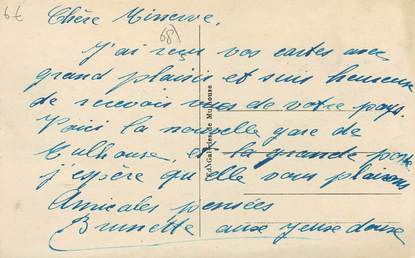 67
68)
Chère Minerve,
J'ai reçu vos cartes avec
grand plaisir et suis heureuse
de recevoir vues de votre pays.
Voici la nouvelle gare de
Mulhouse, et la grande poste
j'espère qu'elle vous plairons
Amicales pensées
Brunette aux yeux doux
Ed. Galeries de Mulhouse